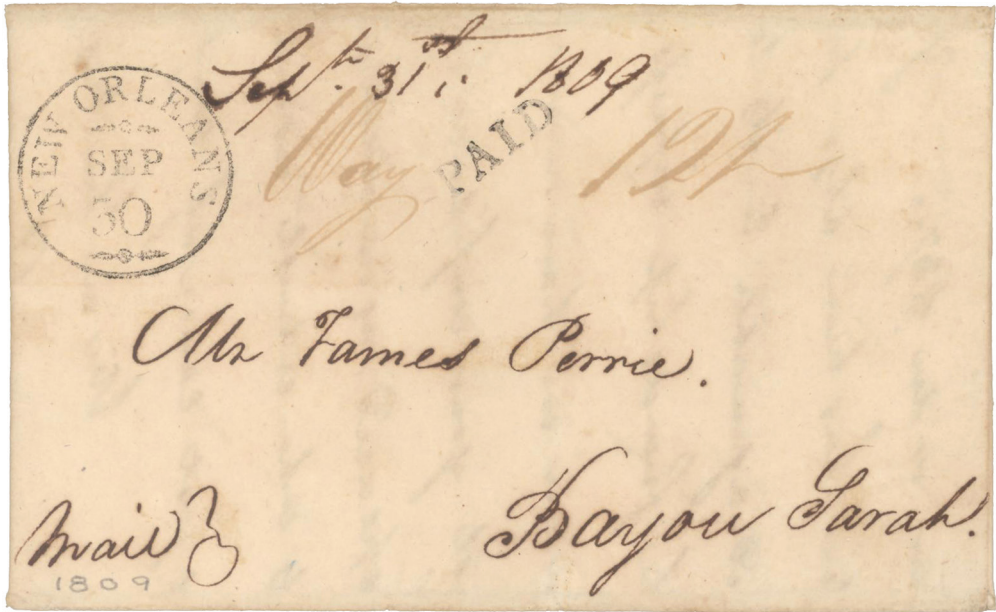 Sepr. 31st. 1809
NEW ORLEANS
SEP
30
PAID
Way 12½
Mr James Perrie.
Bayou Sarah.
Mail
1809